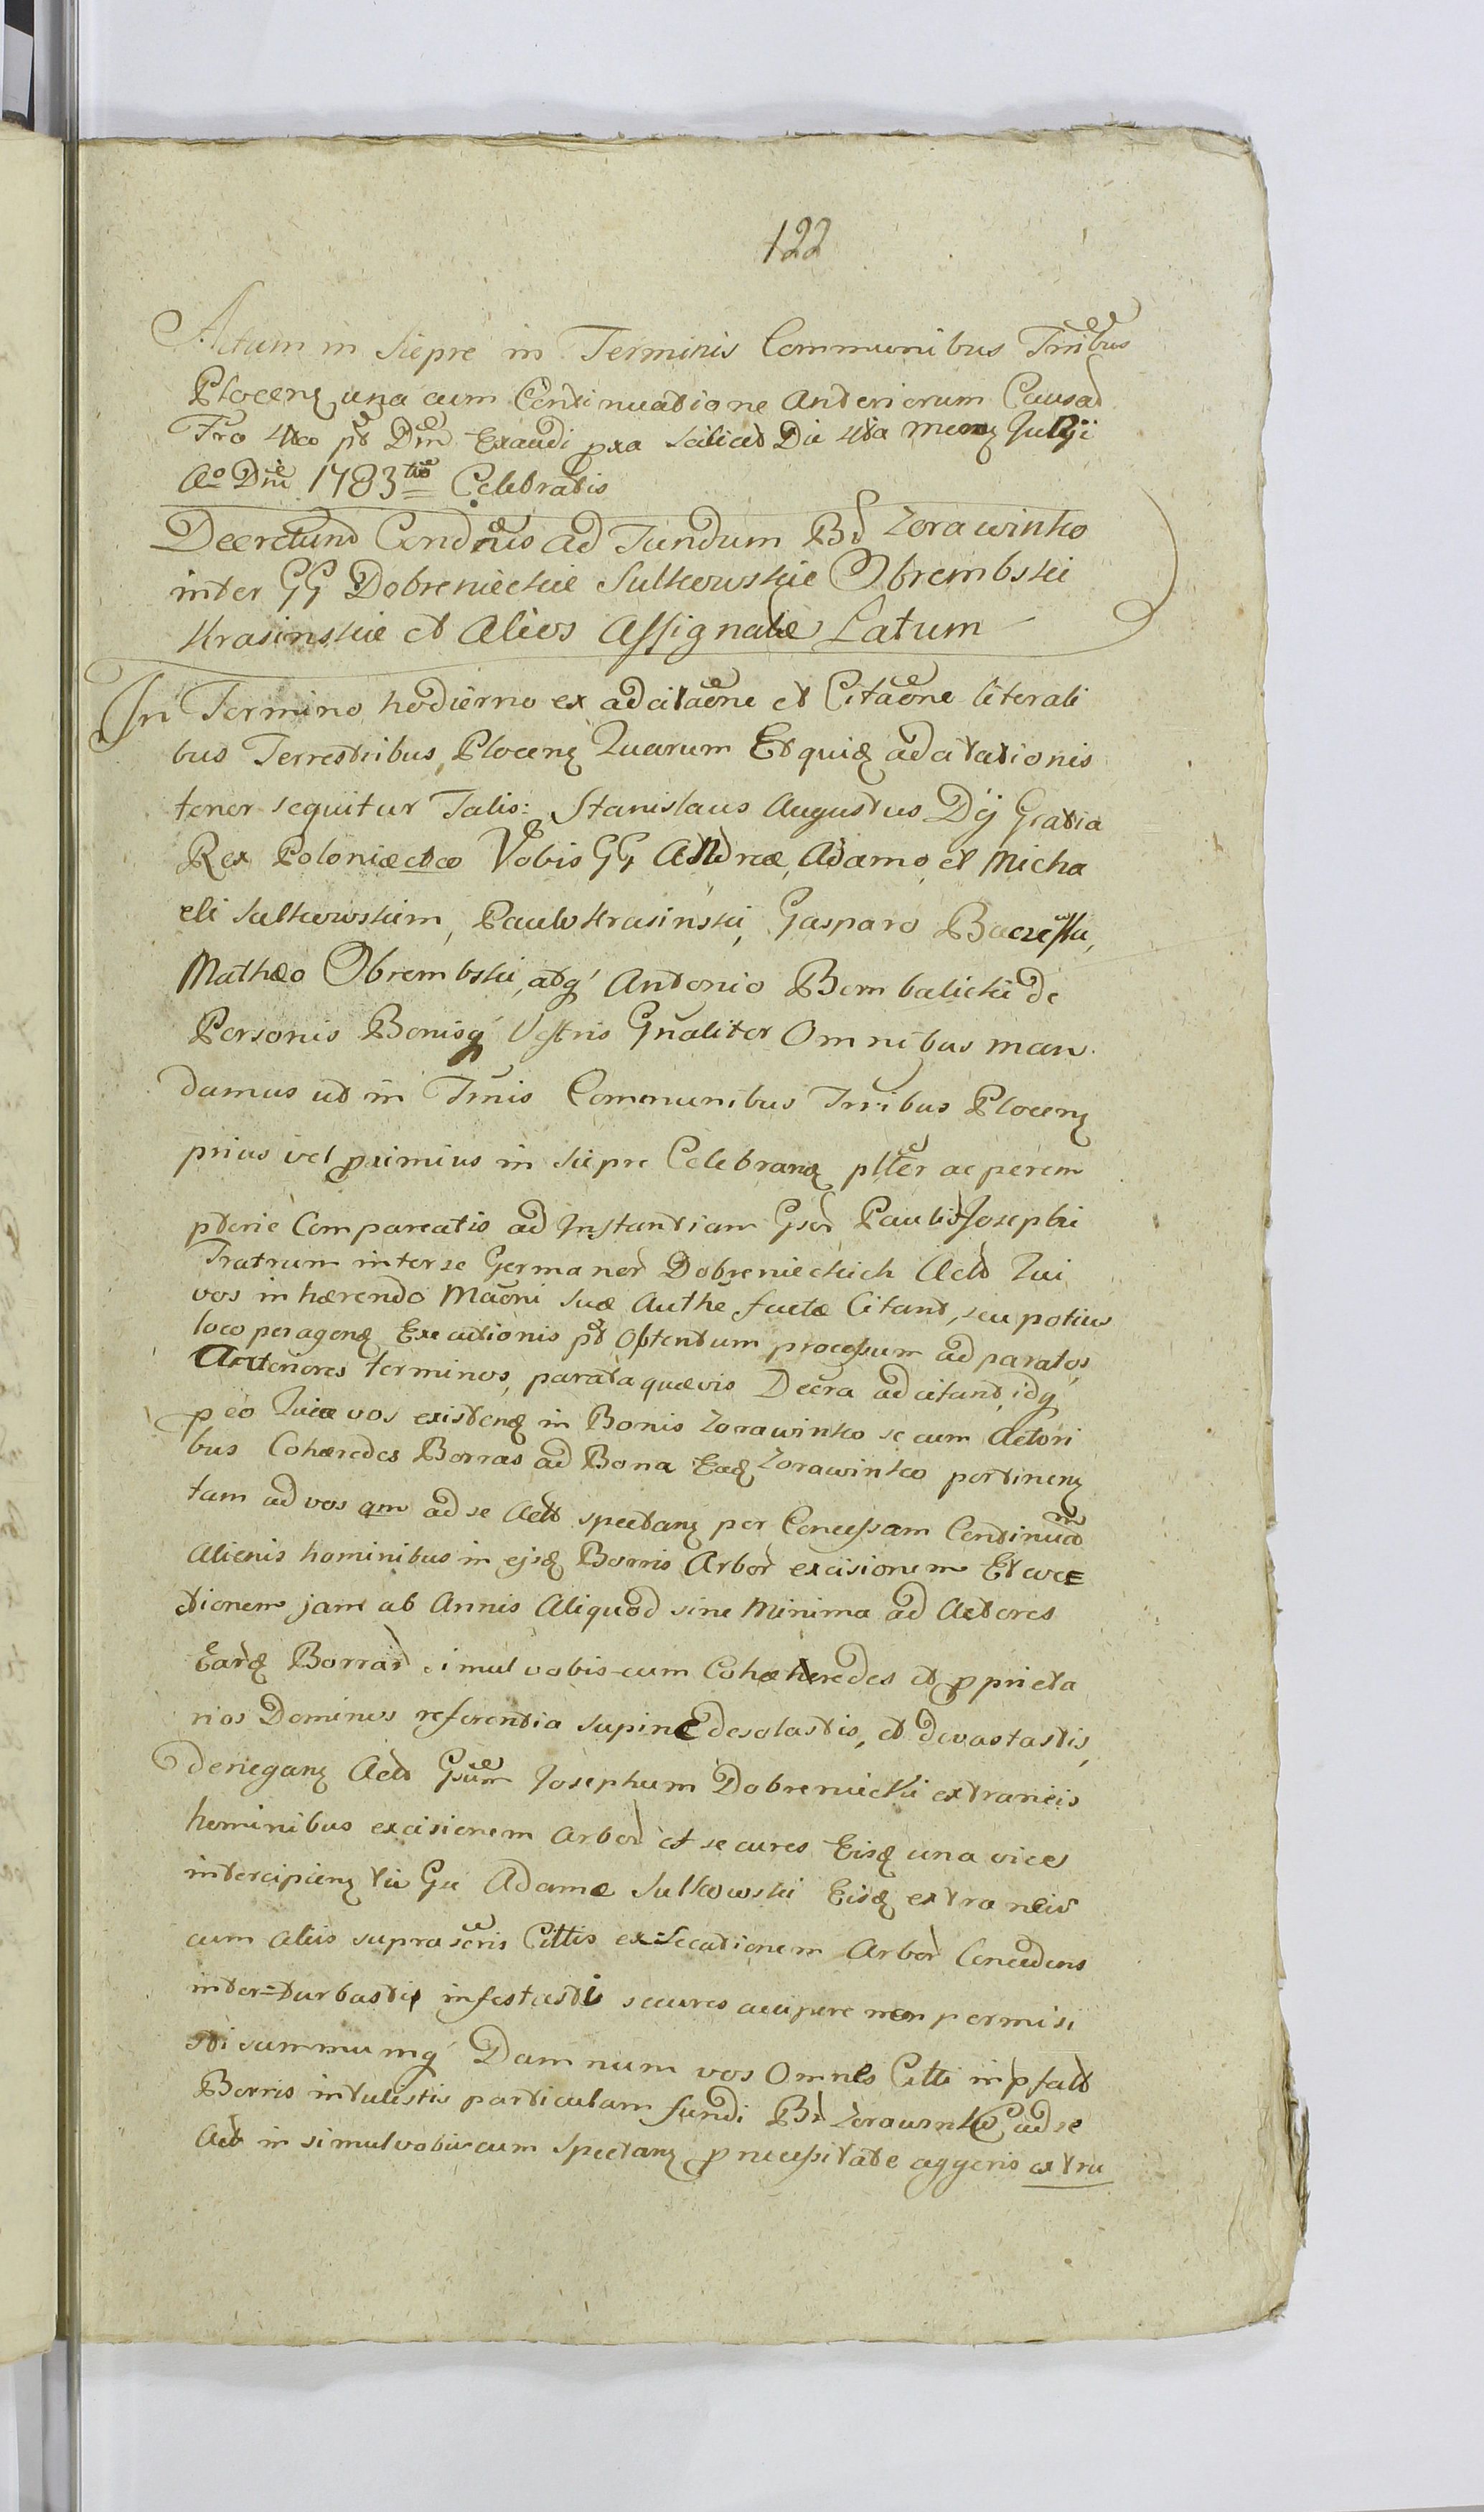 122
Actum in Siepre in Terminis Communibus Trribus
Plocenz una cum Continuatione Anteriorum Causar
Fro 4to pt Dm Exaudi pxa scilicet Die 4ta Menz Julÿi
Ao Dni 1783tio Celebratis
Decretum Condnis ad Fundum Br Zorawinko
inter GG Dobrenieckie Sulkowskie Obrembski
Krasinskie et Alios Assignatæ Latum
In Termino hodierno ex adcitaone et Citaone literali
bus Terrestribus Plocenz Quarum Et quidz adcitationis
tenor sequitur Talis: Stanislaus Augustus Dÿ Gratia
Rex Poloniæ etco Vobis GG Andreæ, Adamo, et Micha
eli Sulkowskim, Paulo Krasinski, Gasparo
Mathæo Obrembski, atq' Antonio Bembalicki de
Personis Bonisq' Vestris Gnaliter Omnibus man
damus ut in Tmis Communibus Trribus Plocenz
prius vel proximius in Siepre Celebranz plter ac perem
ptorie Compareatis ad Instantiam Gsor Pauli et Josephi
Fratrum inter se Germanor Dobrenieckich Actt Qui
vos inhærendo Maoni Suæ Authe factæ Citant, seu potius
loco peragenz Executionis pt Obtentum processum ad paratos
Anteriores terminos, parata quævis Decra adcitant, idq'
p eo Quia vos existenz in Bonis Zorawinko se cum Actori
bus Cohæredes Borras ad Bona Eadz Zorawinko pertinenz
tam ad vos qm ad se Actt spectanz per Concessam Continuam
Alienis hominibus in ejsdz Borris Arbor excisionem Et eve
ctionem jam ab Annis Aliquod sine Minima ad Actores
Eardz Borrar simul vobis-cum Cohæheredes et pprieta
rios Dominos referentia supine desolastis, et devastastis,
deneganz Actt Gsum Josephum Dobreniecki extraneis
hominibus excisionem arbor et secures Eisdz una vice
intercipienz tu Gu Adame Sulkowski Eisdz extraneis
cum aliis suprascris Cittis ex-Secutionem Arbor Concedens
inter=turbastis infestastis secures accipere non permisi
sti summumq' Damnum vos Omnes Citti in pfatt
Borris intulistis particulam fundi Br Zorawinko ad se
Actt in simul vobiscum Spectanz p necessitate aggeris extru